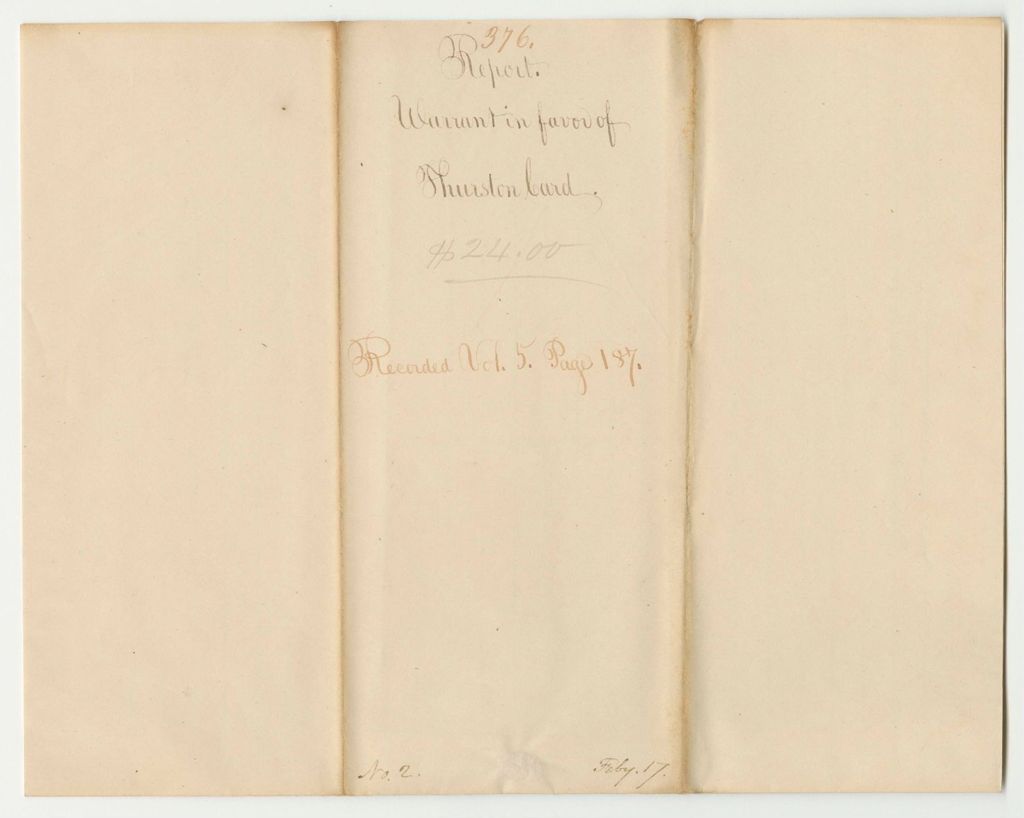 376.
Report.
Warrant in favor of
Thurston Card.
$24.00
Recorded Vol. 5. Page 187.
No. 2. Feby. 17.